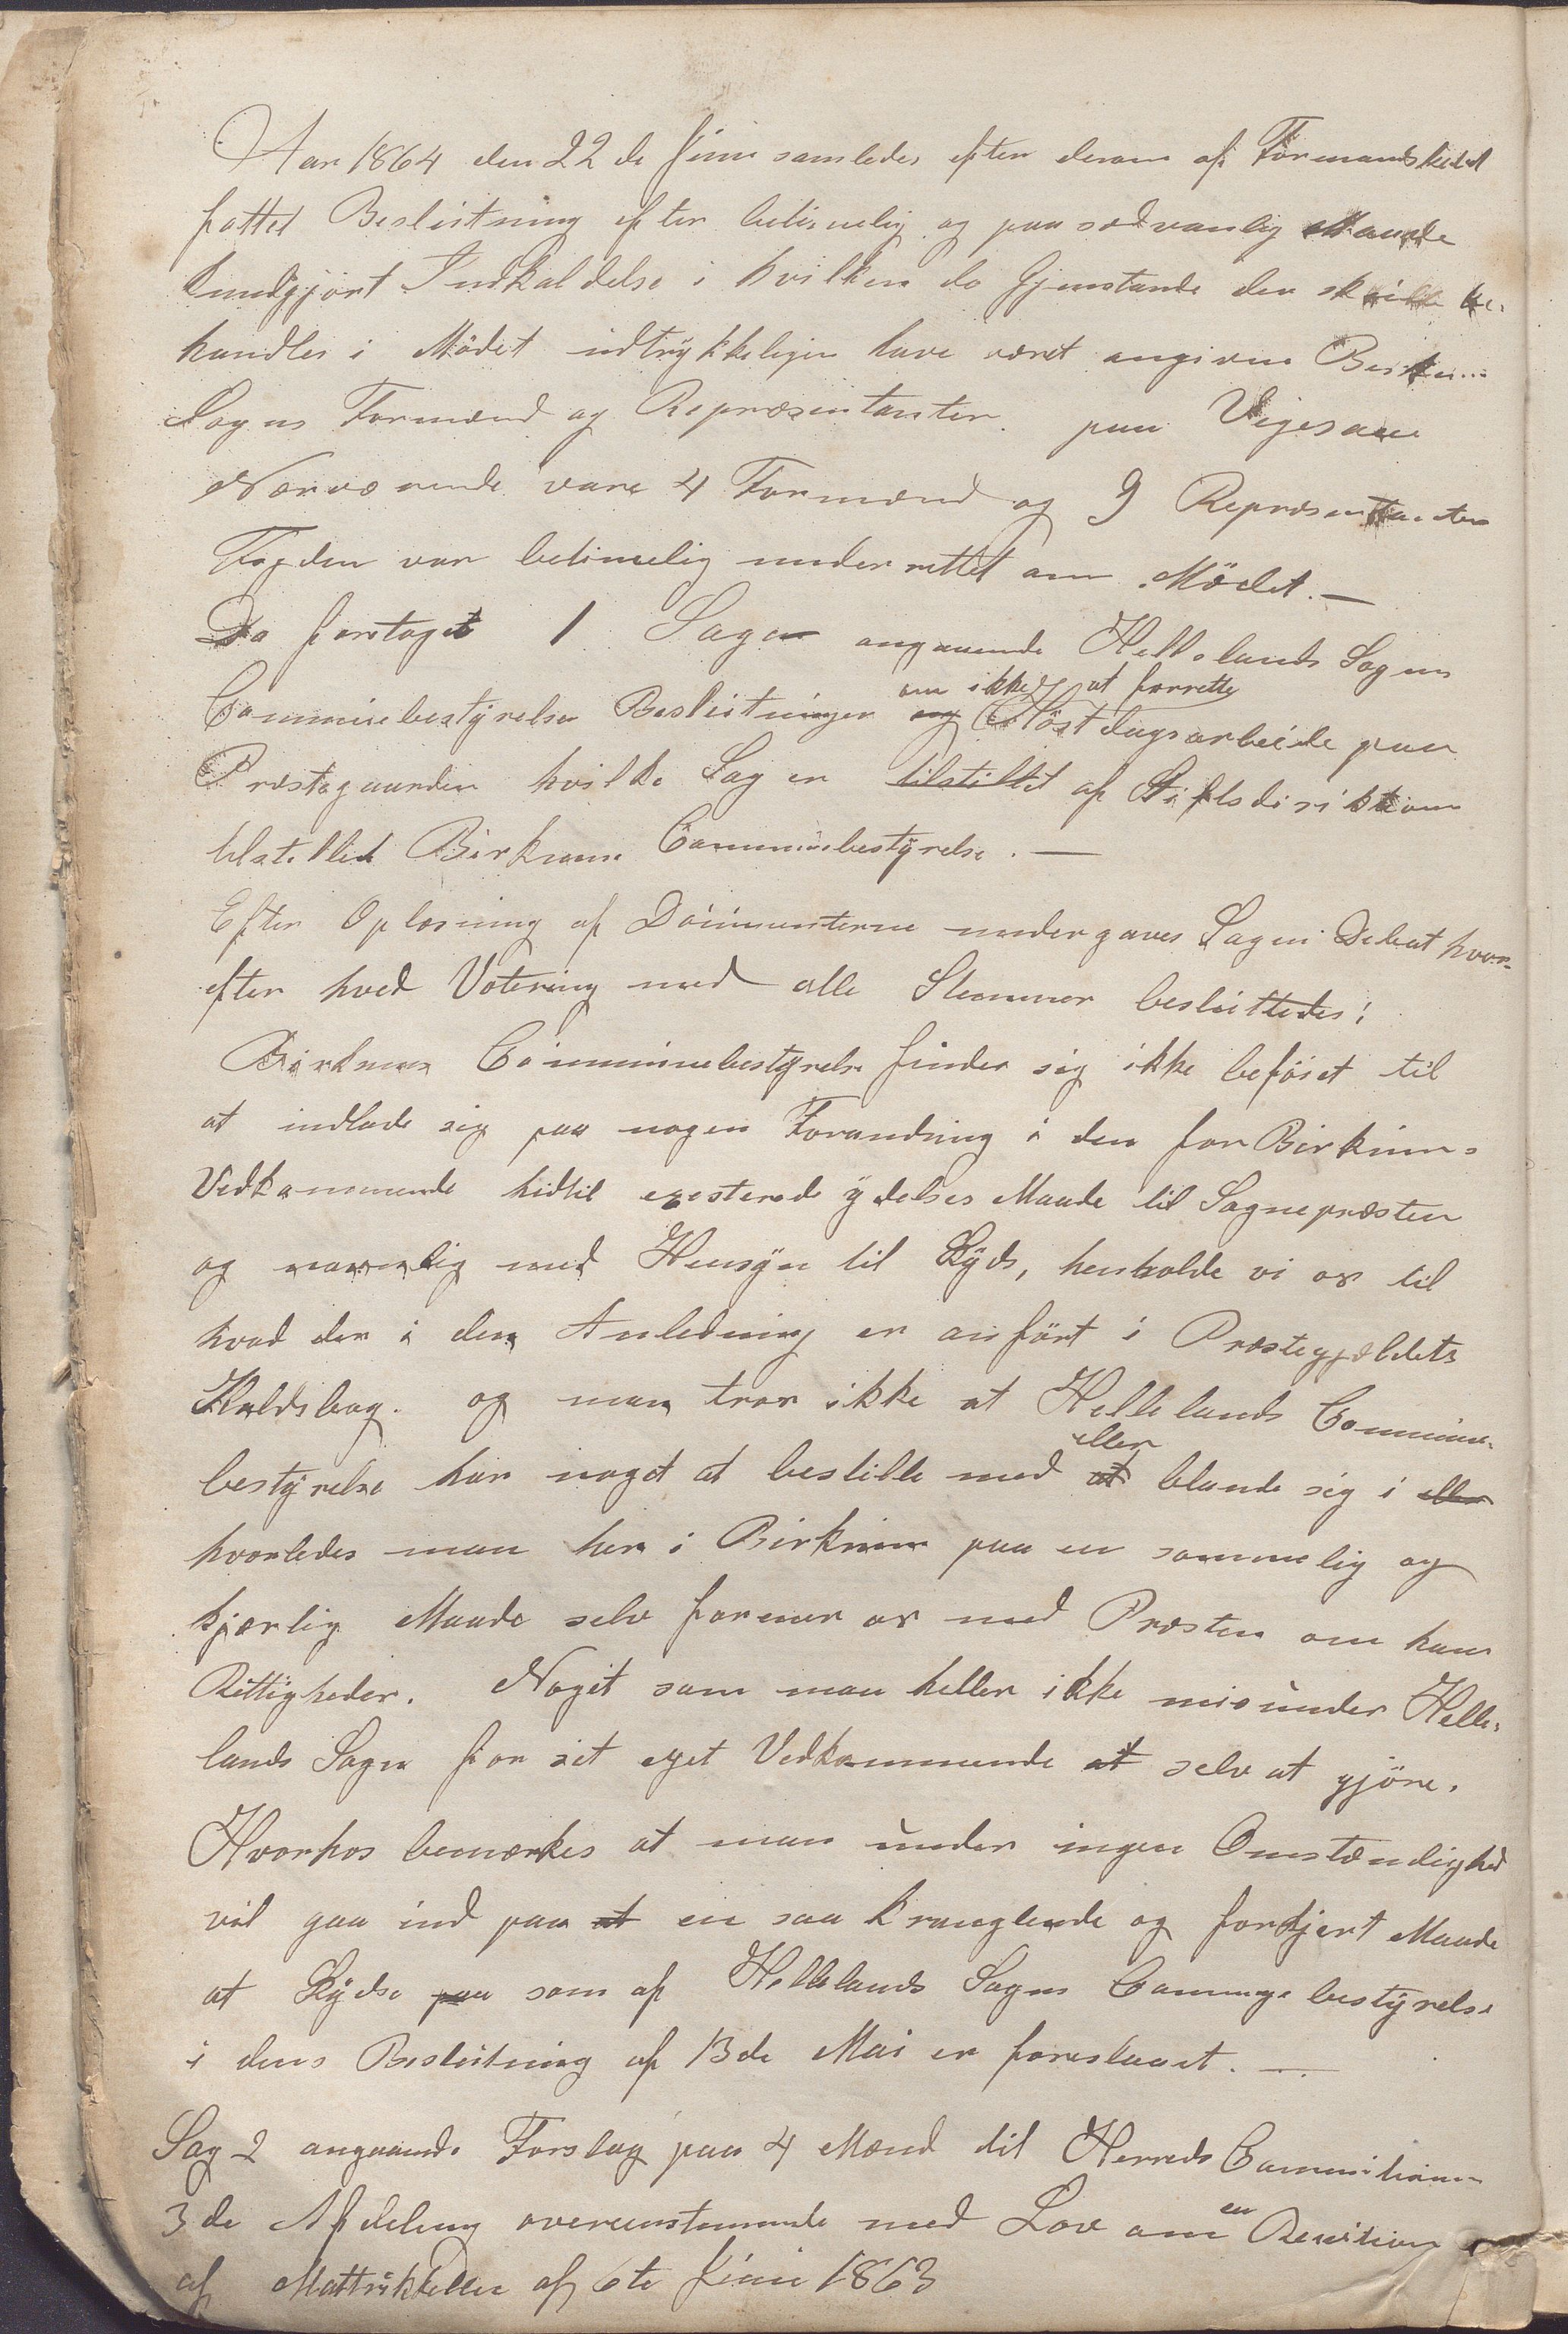 Aar 1864 den 22de Juni samledes efter derom af Formandskabet
fattet Beslutning efter betimelig og paa sædvanlig Maade
kundgjort Indkaldelse i hvilken de Gjenstande der skulle be-
handles i Mödet udtrykkeligen have været angivne
Sogns Formænd og Repræsentanter. paa Vigesaae
Nærværende vare 4 Formænd og 9 Repræsentanter
Fogden var betimelig underrettet om Mödet. —
Da foretoges 1 Sagen angaaende Hellelands Sogns
Communebestyrelses Beslutninger om ikke at forrette Höstdagsarbeide paa
Præstegaarden hvilke Sag er tilstillet af Stiftsdirektionen
tilstillet Birkrem Communebestyrelse. —
Efter Oplæsning af Documenterne undergaves Sagen Debat hvor-
efter hved Votering med alle Stemmer besluttedes:
Birkrem Communebestyrelse finder sig ikke beföiet til
at indlade sig paa nogen Forandring i den for Birkrems
Vedkommende hidtil exesterede ydelses Maade til Sognepræsten
og navnlig med Hensyn til Skyds, henholde vi os til
hvad der i den Anledning er anfört i Præstegjældets
Kaldsbog. og man tror ikke at Hellelands Commune-
bestyrelse har noget at bestille med eller at blande sig i eller
hvorledes man her i Birkrem paa en sømmelig og
kjærlig Maade selv forener os med Præsten om hans
Rettigheder. Noget som man heller ikke misunder Helle-
lands Sogn for sit eget Vedkommende at selv at gjöre.
Hvorhos bemærkes at man under ingen Omstændighed
vil gaa ind paa at en saa kranglende og forkjert Maade
at Skydse paa som af Hellelands Sogns Communebestyrelse
i dens Beslutning af 13de Mai er foreslaaet. —
Sag 2 angaaende Forslag paa 4 Mænd til Herreds Commitionen
3de Afdeling overenstemmende med Lov om en Revition
af Mattrikkellen af 6te Juni 1863